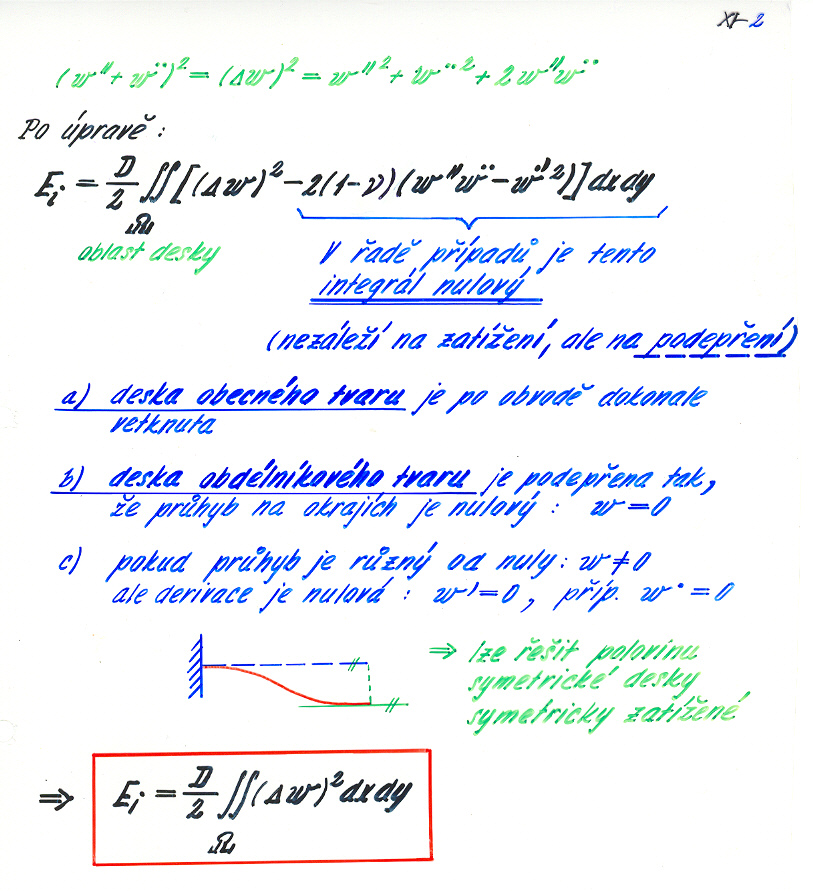 XI-2
(w'' + ẅ)² = (Δw)² = w''² + ẅ² + 2w''ẅ
Po úpravě:
Eᵢ = D/2 ∬ [(Δw)² − 2(1−ν)(w''ẅ − ẇ'²)] dxdy
Ω
oblast desky
V řadě případů je tento
integrál nulový
(nezáleží na zatížení, ale na podepření)
a) deska obecného tvaru je po obvodě dokonale
vetknuta
b) deska obdélníkového tvaru je podepřena tak,
že průhyb na okrajích je nulový: w = 0
c) pokud průhyb je různý od nuly: w ≠ 0
ale derivace je nulová: w' = 0, příp. w˙ = 0
⇒ lze řešit polovinu
symetrické desky
symetricky zatížené
⇒ Eᵢ = D/2 ∬ (Δw)² dxdy
Ω